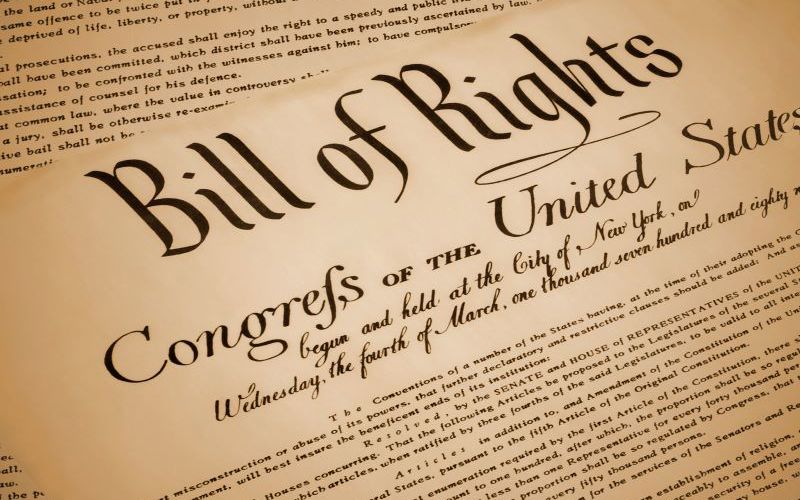 the land or Naval
same offence to be twice put in
deprived of life, liberty, or property, without
al prosecutions, the accused shall enjoy the right to a speedy and public
all have been committed, which district shall have been previously ascertained by law.
sation; to be confronted with the witnesses against him; to have compulsory
assistance of counsel for his defence.
at common law, where the value in controversy shall
a jury, shall be otherwise re-exami
ive bail shall not be
numerati
Bill of Rights
Congreſs OF THE United States
begun and held at the City of New York, on
Wednesday, the fourth of March, one thousand seven hundred and eighty
The Conventions of a number of the States having, at the time of their adopting the
misconstruction or abuse of its powers, that further declaratory and restrictive clauses should be added: And as
will best insure the beneficent ends of its institution:
Resolved, by the SENATE and HOUSE of REPRESENTATIVES of the UNIT
Houses concurring, That the following Articles be proposed to the Legislatures of the several
which articles, when ratified by three fourths of the said Legislatures, to be valid to all inte
Articles in addition to, and Amendment of the Constitution of the Un
eral States, pursuant to the fifth Article of the Original Constitution.
enumeration required by the first Article of the Constitution, there
to one hundred, after which, the proportion shall be so regu
less than one Representative for every forty thousand per
proportion shall be so regulated by Congress, that
fifty thousand persons.
for the services of the Senators and Re
establishment of religion,